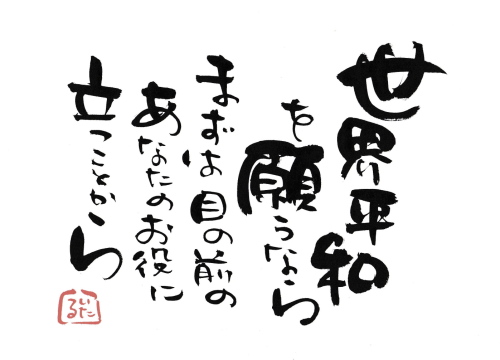 世界平和
を願うなら
まずは目の前の
あなたのお役に
立つことから